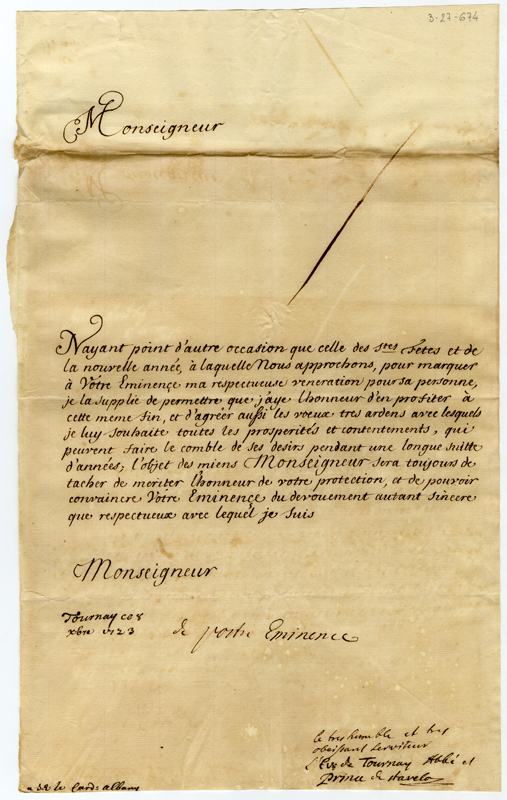 3-27-674
Monseigneur
Nayant point d'autre occasion que celle des stes Fetes et de
la nouvelle année, à laquelle Nous approchons, pour marquer
à Vôtre Eminençe ma respectueuse veneration pour sa personne,
je la supplie de permettre que j'aye lhonneur d'en profiter à
cette meme fin, et d'agréer aussi les voeux tres ardens avec lesquels
je luy souhaite toutes les prosperités et contentements, qui
peuvent faire le comble de ses desirs pendant une longue suitte
d'années, l'objet des miens Monseigneur sera toujours de
tacher de meriter lhonneur de votre protection, et de pouvoir
convaincre Votre Eminençe du devouement autant sincere
que respectueux avec lequel je suis
Monseigneur
Tournay ce 8
xbre 1723
de vostre Eminence
le tres humble et tres
obeissant serviteur
L'Ev. de Tournay Abbé et
Prince de
le Card: Albany